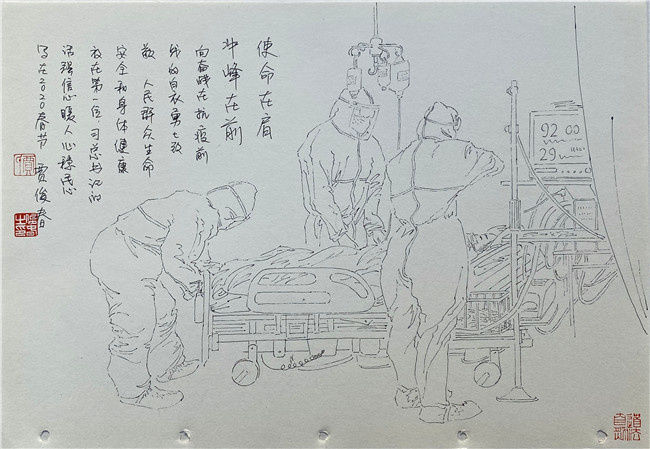 使命在肩
冲峰在前
向奋战在抗疫前
线的白衣勇士致
敬 人民群众生命
安全和身体健康
放在第一位,习总书记的
话强信心暖人心稳民心
写在2020春节 贾俊春
92 00
29